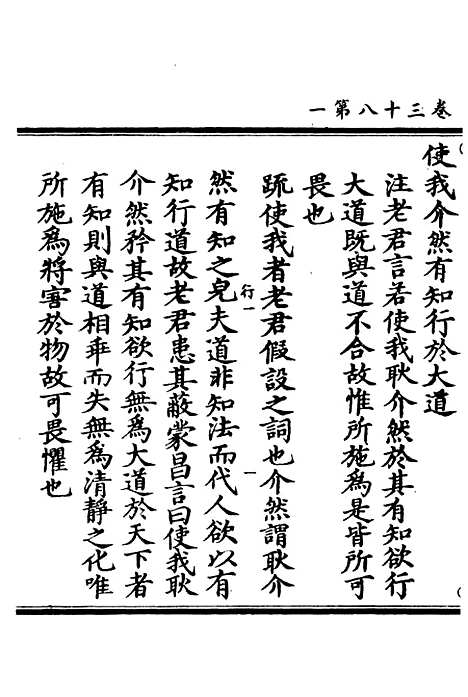 卷三十八第一
使我介然有知行於大道
注老君言若使我耿介然於其有知欲行
大道既與道不合故惟所施爲是皆所可
畏也
疏使我者老君假設之詞也介然謂耿介
然有知之皃夫道非知法而代人欲以有
行一
一
知行道故老君患其蔽蒙昌言曰使我耿
介然矜其有知欲行無爲大道於天下者
有知則與道相乖而失無爲清靜之化唯
所施爲將害於物故可畏懼也